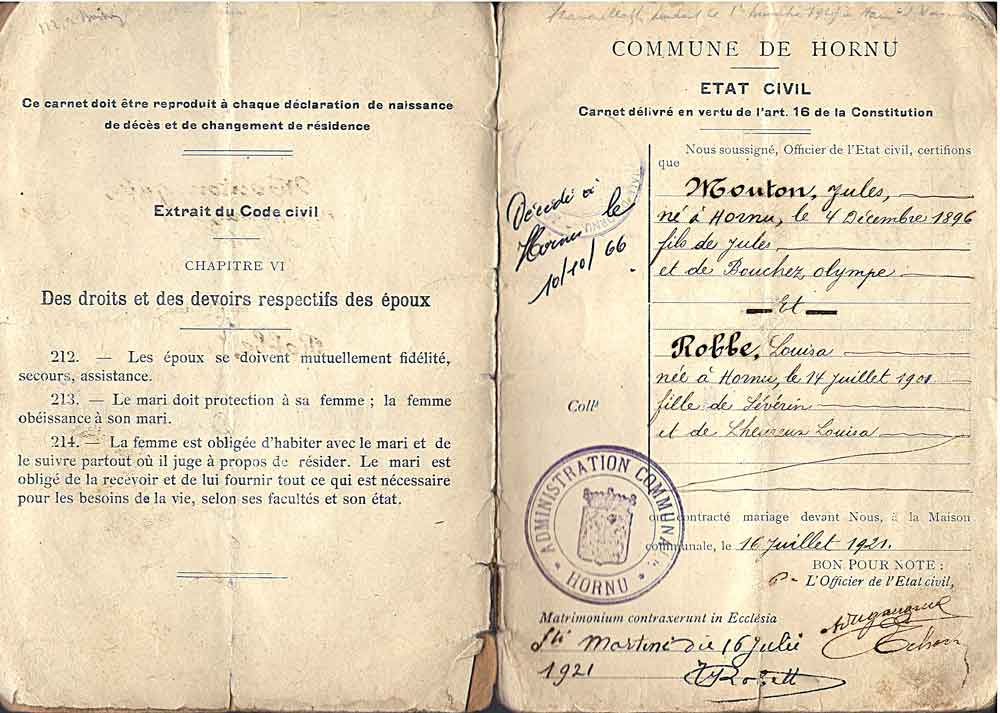 Ce carnet doit être reproduit à chaque déclaration de naissance
de décès et de changement de résidence
Extrait du Code civil
CHAPITRE VI
Des droits et des devoirs respectifs des époux
212. — Les époux se doivent mutuellement fidélité,
secours, assistance.
213. — Le mari doit protection à sa femme ; la femme
obéissance à son mari.
214. — La femme est obligée d'habiter avec le mari et de
le suivre partout où il juge à propos de résider. Le mari est
obligé de la recevoir et de lui fournir tout ce qui est nécessaire
pour les besoins de la vie, selon ses facultés et son état.
COMMUNE DE HORNU
ETAT CIVIL
Carnet délivré en vertu de l'art. 16 de la Constitution
Nous soussigné, Officier de l'Etat civil, certifions
que
Mouton, Jules,
né à Hornu, le 4 Décembre 1896
fils de Jules
et de Bouchez, Olympe
Et
Robbe, Louisa
née à Hornu, le 14 Juillet 1901
fille de Séverin
et de Lheureux Louisa
Décédé à
Hornu le
10/10/66
Coll¹
ADMINISTRATION COMMUNALE
HORNU
ont contracté mariage devant Nous, à la Maison
communale, le 16 Juillet 1921.
BON POUR NOTE :
L'Officier de l'Etat civil,
Matrimonium contraxerunt in Ecclésia
Sti Martini die 16 Julii
1921